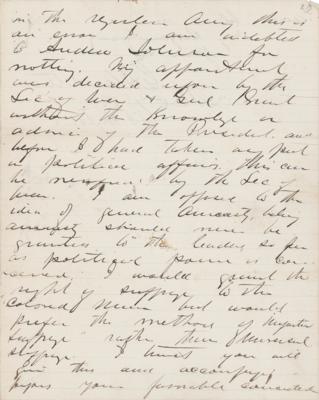 in the regular Army this is
an error I am indebted
to Andrew Johnson for
nothing. My appointment
was decided upon by the
Sec of War & Genl Grant
without the Knowledge or
advice of the President and
before I had taken any part
in political affairs. This can
be by the Sec of
War. I am opposed to the
idea of general Amnesty, being
amnesty should never be
granted to the leaders so far
as political power is con-
cerned. I would grant the
right of suffrage to the
colored man but would
prefer the method of impartial
suffrage rather than Universal
suffrage. I trust you will
this and accompanying
papers your favorable consideration